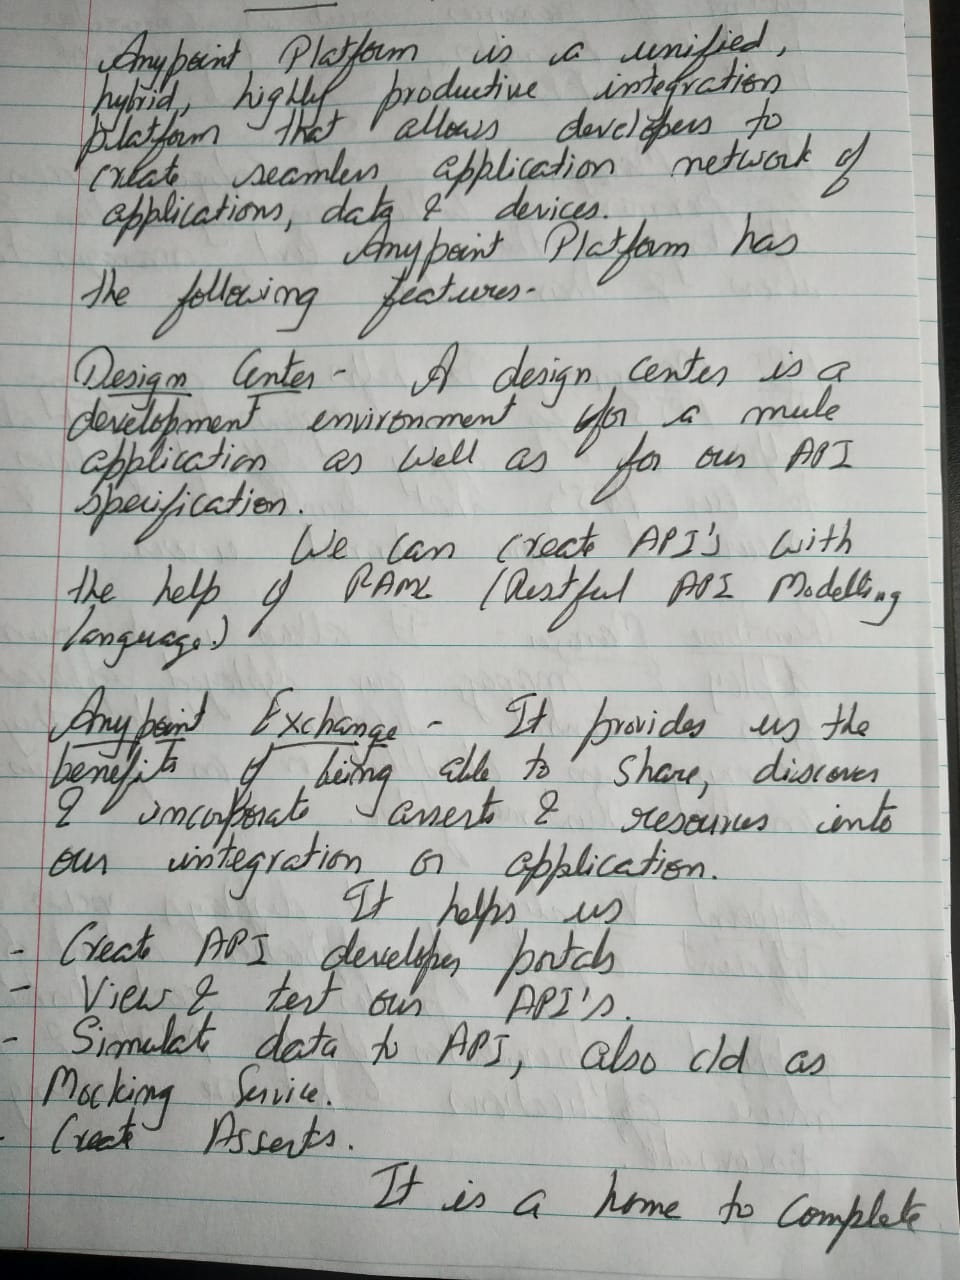 Anypoint Platform is a unified,
hybrid, highly productive integration
platform that allows developers to
create seamless application network of
applications, data & devices.
Anypoint Platform has
the following features-
Design Center - A design center is a
development environment for a mule
application as well as for our API
specification.
We can create API's with
the help of RAML (Restful API Modelling
language.)
Anypoint Exchange - It provides us the
benefits of being able to share, discover
& incorporate asserts & resources into
our integration or application.
It helps us
- Create API developer portals
- View & test our API's.
- Simulate data to API, also c/d as
Mocking Service.
- Create Asserts.
It is a home to complete